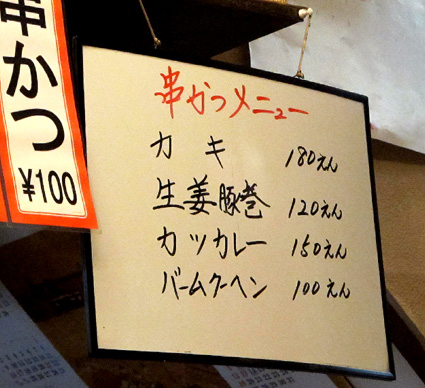 串かつ
¥100
串かつメニュー
カキ 180えん
生姜豚巻 120えん
カツカレー 150えん
バームクーヘン 100えん